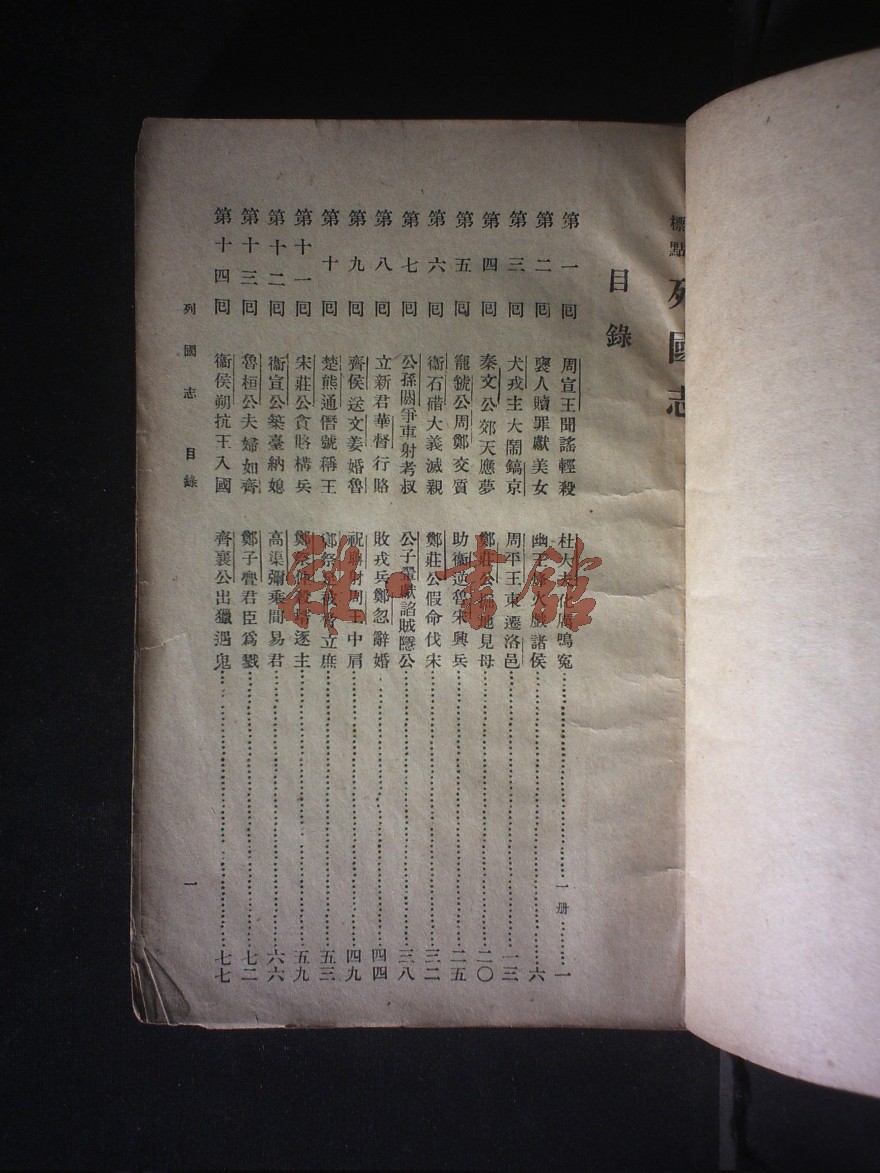 標點 列國志
目錄
第一囘 周宣王聞謠輕殺 杜大夫化厲鳴冤 一册 一
第二囘 褒人贖罪獻美女 幽王烽火戲諸侯 六
第三囘 犬戎主大鬧鎬京 周平王東遷洛邑 一三
第四囘 秦文公郊天應夢 鄭莊公掘地見母 二〇
第五囘 寵虢公周鄭交質 助衞逆魯宋興兵 二五
第六囘 衞石碏大義滅親 鄭莊公假命伐宋 三二
第七囘 公孫閼爭車射考叔 公子翬獻諂賊隱公 三八
第八囘 立新君華督行賂 敗戎兵鄭忽辭婚 四四
第九囘 齊侯送文姜婚魯 祝聃射周王中肩 四九
第十囘 楚熊通僭號稱王 鄭祭足被脅立庶 五三
第十一囘 宋莊公貪賂構兵 鄭祭仲殺壻逐主 五九
第十二囘 衞宣公築臺納媳 高渠彌乘間易君 六六
第十三囘 魯桓公夫婦如齊 鄭子亹君臣爲戮 七二
第十四囘 衞侯朔抗王入國 齊襄公出獵遇鬼 七七
列國志 目錄 一
雜·書館